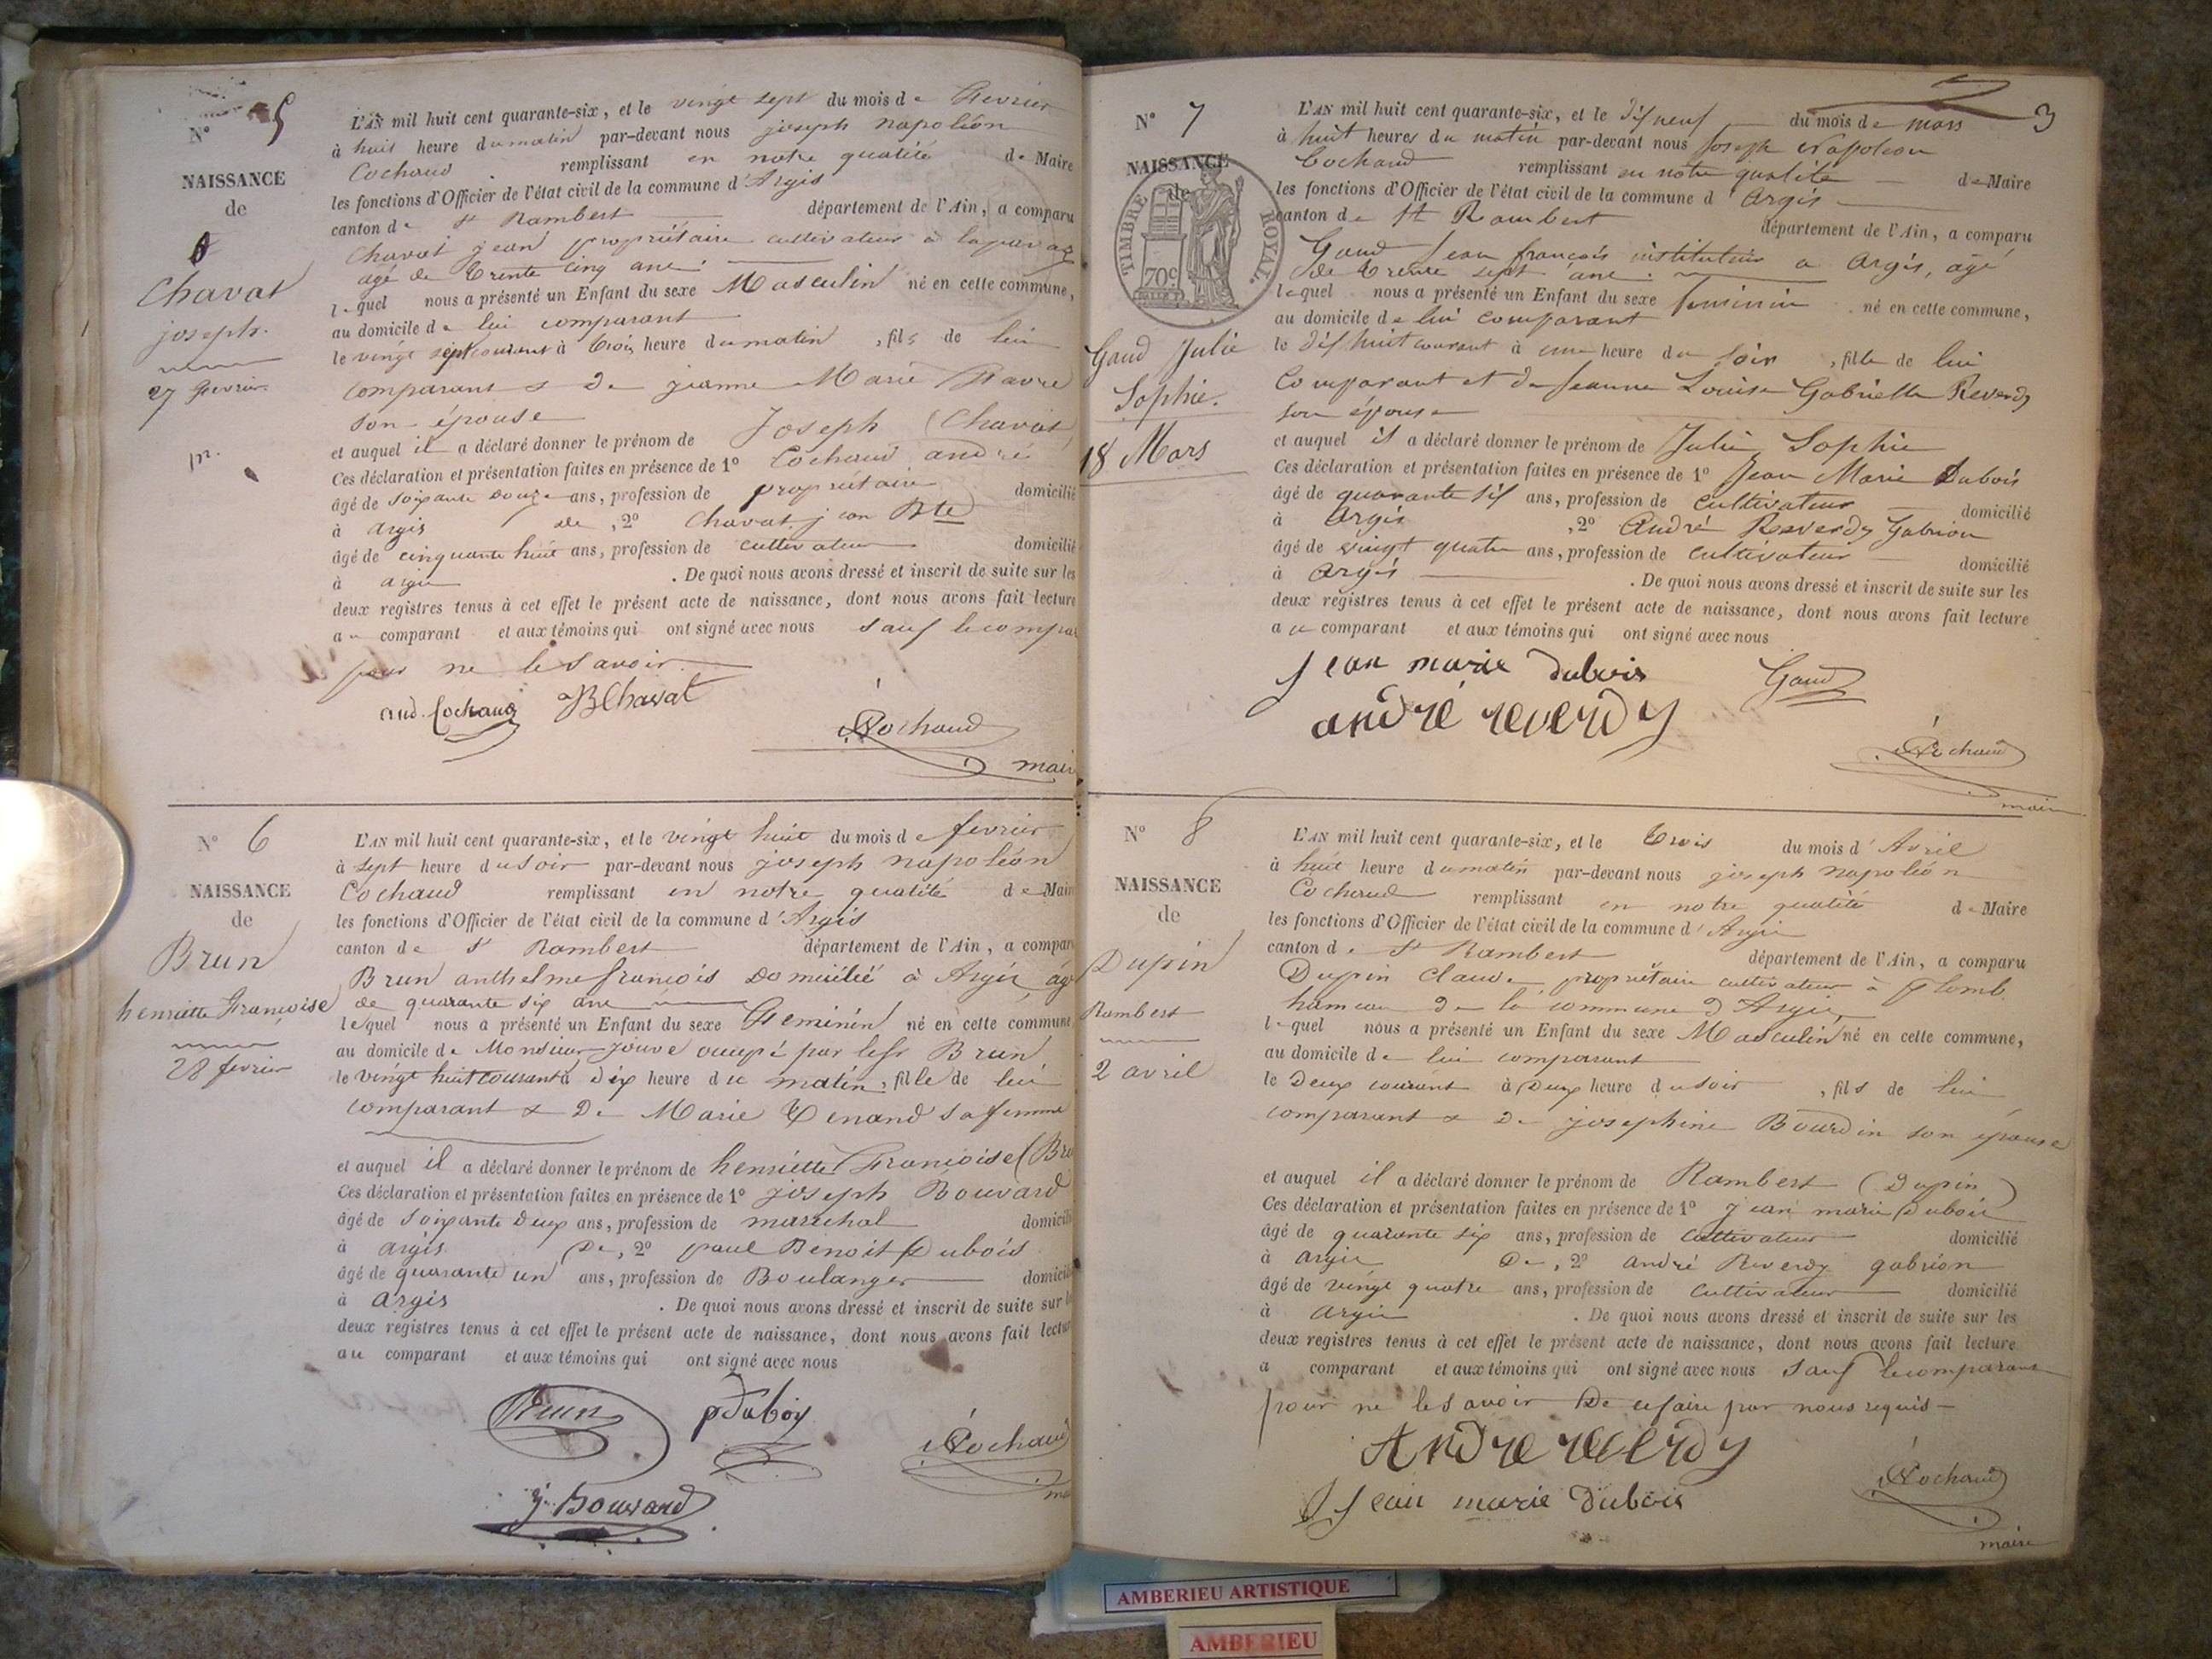 N° 5
NAISSANCE
de
Chavat
joseph.
27 fevrier
L'AN mil huit cent quarante-six, et le vingt sept du mois de Fevrier
à huit heure du matin par-devant nous joseph napoléon
Cochaud remplissant en notre qualité de Maire
les fonctions d'Officier de l'état civil de la commune d'Argis
canton de St Rambert département de l'Ain, a comparu
Chavat jean propriétaire cultivateur à
agé de trente cinq ans
lequel nous a présenté un Enfant du sexe Masculin né en cette commune,
au domicile de lui comparant
le vingt sept courant à trois heure du matin, fils de lui
comparant & de jeanne Marie Favre
son épouse
et auquel il a déclaré donner le prénom de Joseph (Chavat)
Ces déclaration et présentation faites en présence de 1° Cochaud andré
âgé de soixante douze ans, profession de propriétaire domicilié
à argis de, 2° Chavat jean Bte
âgé de cinquante huit ans, profession de cultivateur domicilié
à argis. De quoi nous avons dressé et inscrit de suite sur les
deux registres tenus à cet effet le présent acte de naissance, dont nous avons fait lecture
au comparant et aux témoins qui ont signé avec nous sauf le compar
pour ne le savoir.
and. Cochaud JB Chavat
Cochaud
maire
N° 6
NAISSANCE
de
Brun
henriette Françoise
28 fevrier
L'AN mil huit cent quarante-six, et le vingt huit du mois de fevrier
à sept heure du soir par-devant nous joseph napoléon
Cochaud remplissant en notre qualité de Maire
les fonctions d'Officier de l'état civil de la commune d'Argis
canton de St Rambert département de l'Ain, a comparu
Brun anthelme françois domicilié à Argis, agé
de quarante six ans
lequel nous a présenté un Enfant du sexe Feminin né en cette commune
au domicile de Monsieur jouve occupé par le sr Brun
le vingt huit courant à dix heure du matin, fille de lui
comparant & de Marie Tenand sa femme
et auquel il a déclaré donner le prénom de henriette Françoise (Bru
Ces déclaration et présentation faites en présence de 1° joseph Bouvard
âgé de soixante deux ans, profession de marechal domicilié
à argis De, 2° paul Benoit Dubois
âgé de quarante un ans, profession de Boulanger domicilié
à argis. De quoi nous avons dressé et inscrit de suite sur les
deux registres tenus à cet effet le présent acte de naissance, dont nous avons fait lecture
au comparant et aux témoins qui ont signé avec nous
Brun pDuboy
Cochaud
j. Bouvard
N° 7
3
NAISSANCE
de
TIMBRE ROYAL.
70c
Gaud Julie
Sophie.
18 Mars
L'AN mil huit cent quarante-six, et le dix neuf du mois de mars
à huit heures du matin par-devant nous Joseph Napoléon
Cochaud remplissant en notre qualité de Maire
les fonctions d'Officier de l'état civil de la commune d'Argis
canton de St Rambert département de l'Ain, a comparu
Gaud Jean françois instituteur a Argis, agé
de trente sept ans
lequel nous a présenté un Enfant du sexe Feminin né en cette commune,
au domicile de lui comparant
le dix huit courant à une heure du soir, fille de lui
comparant et de Jeanne Louise Gabrielle Reverdy
son épouse
et auquel il a déclaré donner le prénom de Julie Sophie
Ces déclaration et présentation faites en présence de 1° Jean Marie Dubois
âgé de quarante six ans, profession de cultivateur domicilié
à Argis, 2° André Reverdy Gabrion
âgé de vingt quatre ans, profession de cultivateur domicilié
à Argis. De quoi nous avons dressé et inscrit de suite sur les
deux registres tenus à cet effet le présent acte de naissance, dont nous avons fait lecture
au comparant et aux témoins qui ont signé avec nous
Jean marie Dubois Gaud
andré reverdy
Cochaud
maire
N° 8
NAISSANCE
de
Dupin
Rambert
2 avril
L'AN mil huit cent quarante-six, et le trois du mois d'Avril
à huit heure du matin par-devant nous joseph napoléon
Cochaud remplissant en notre qualité de Maire
les fonctions d'Officier de l'état civil de la commune d'Argis
canton de St Rambert département de l'Ain, a comparu
Dupin Claude propriétaire cultivateur à plomb
hameau de la commune d'Argis
lequel nous a présenté un Enfant du sexe Masculin né en cette commune,
au domicile de lui comparant
le deux courant à deux heure du soir, fils de lui
comparant & de josephine Bourdin son épouse
et auquel il a déclaré donner le prénom de Rambert (Dupin)
Ces déclaration et présentation faites en présence de 1° jean marie Dubois
âgé de quarante six ans, profession de cultivateur domicilié
à argis De, 2° andré Reverdy gabrion
âgé de vingt quatre ans, profession de cultivateur domicilié
à argis. De quoi nous avons dressé et inscrit de suite sur les
deux registres tenus à cet effet le présent acte de naissance, dont nous avons fait lecture
a comparant et aux témoins qui ont signé avec nous sauf le comparant
pour ne le savoir De ce faire par nous requis
André reverdy
Cochaud
Jean marie Dubois
maire
AMBERIEU ARTISTIQUE
AMBERIEU